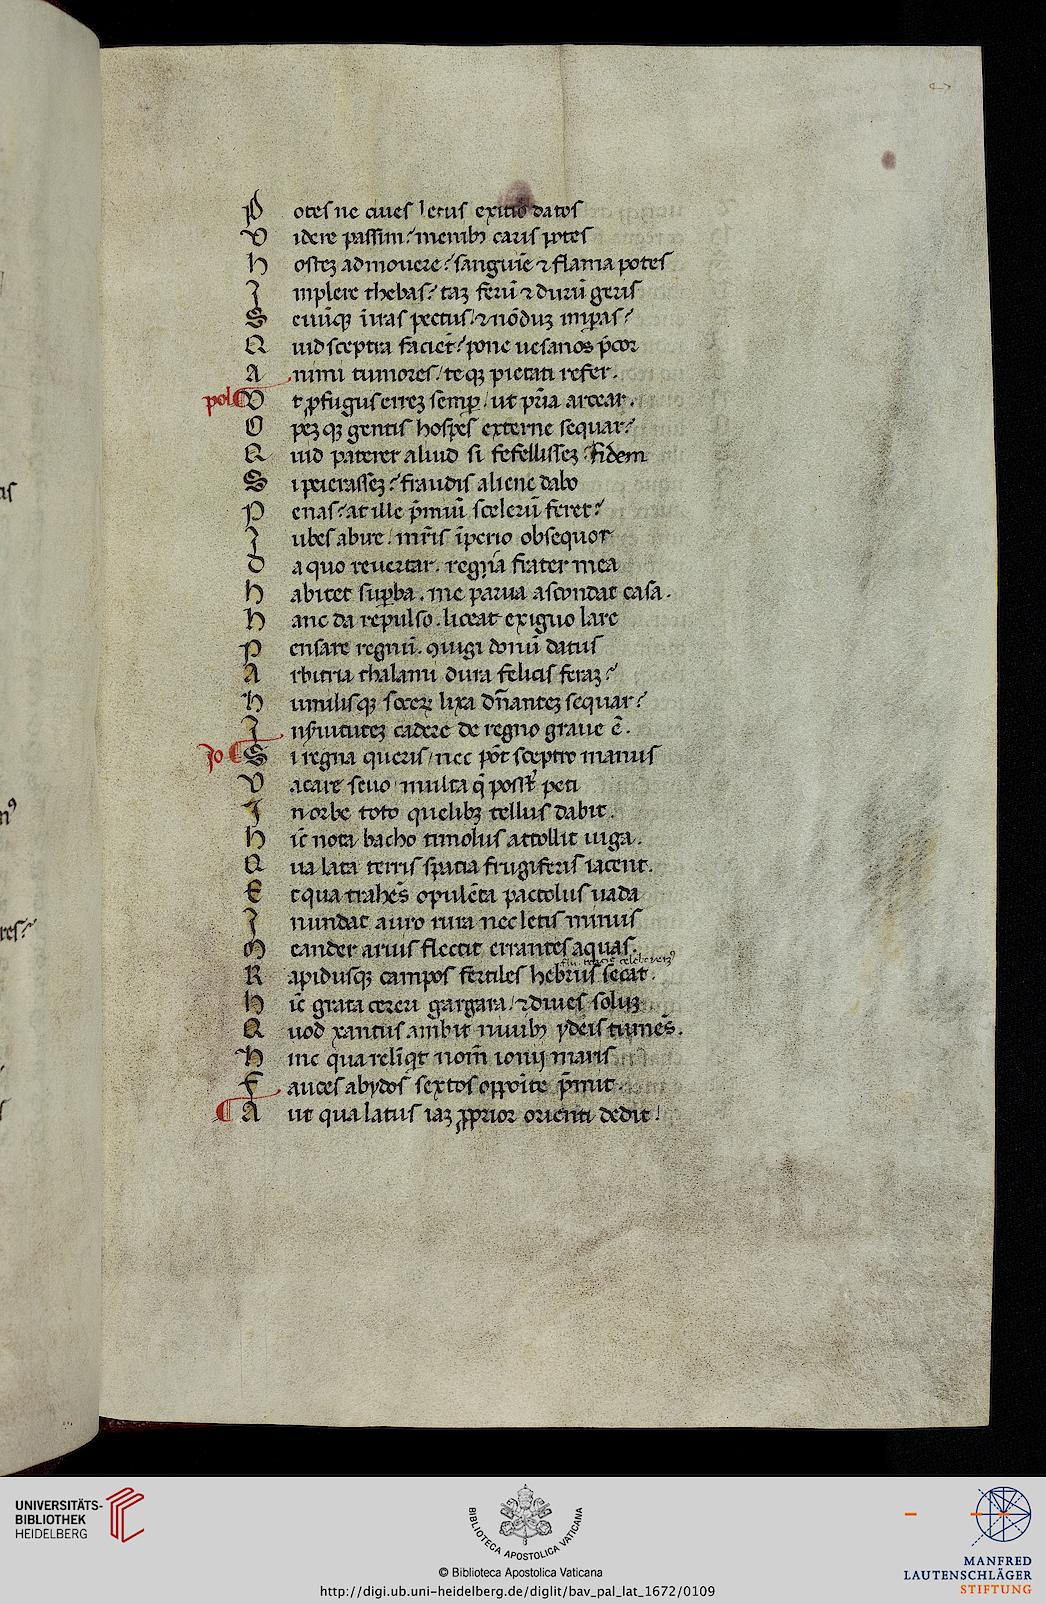 Potes ne ciues letus exitio datos
Videre passim? menibꝫ caris potes
Hosteꝫ admouere? sanguīe ⁊ flama potes
Implere thebas? taꝫ ferū ⁊ durū geris
Seuūqꝫ ī iras pectus? ⁊ nōduꝫ imꝑas?
Quid sceptra faciēt? pone uesanos p̄cor
Animi tumores / teqꝫ pietati refer.
pol
Vt ꝓfugus erreꝫ semꝑ / ut pr̄ia arcear.
Opeꝫqꝫ gentis hospes externe sequar?
Quid paterer aliud si fefellisseꝫ fidem
Si peierasseꝫ? fraudis aliene dabo
Penas? at ille p̄miū scelerū feret?
Iubes abire / mr̄is īperio obsequor
Da quo reuertar. regia frater mea
Habitet suꝑba. me parua ascondat casa.
Hanc da repulso. liceat exiguo lare
Pensare regnū. ꝯiugi donū datus
Arbitria thalami dura felicis feraꝫ?
Humilisqꝫ soceꝝ lixa dn̄anteꝫ sequar?
In seruituteꝫ cadere de regno graue ē.
Jo
Si regna queris / nec pōt sceptro manus
Vacare seuo / multa q̄ possūt peti
In orbe toto quelibꝫ tellus dabit.
Hīc nota bacho timolus attollit iuga.
Qua lata terris spatia frugiferis iacent.
Et qua trahēs opulēta pactolus uada
Inundat auro rura nec letis minus
Meander aruis flectit errantes aquas.
Rapidusqꝫ campos fertiles hebrus secat.
Hīc grata cereri gargara / ⁊ diues soluꝫ
Quod xantus ambit niuibꝫ ydeis tumēs.
Hinc qua relīqt nom̄ ionij maris
Fauces abydos sextos opposite p̄mit.
Aut qua latus iaꝫ ꝓprior orienti dedit!
UNIVERSITÄTS-
BIBLIOTHEK
HEIDELBERG
BIBLIOTECA APOSTOLICA VATICANA
© Biblioteca Apostolica Vaticana
http://digi.ub.uni-heidelberg.de/diglit/bav_pal_lat_1672/0109
MANFRED
LAUTENSCHLÄGER
STIFTUNG